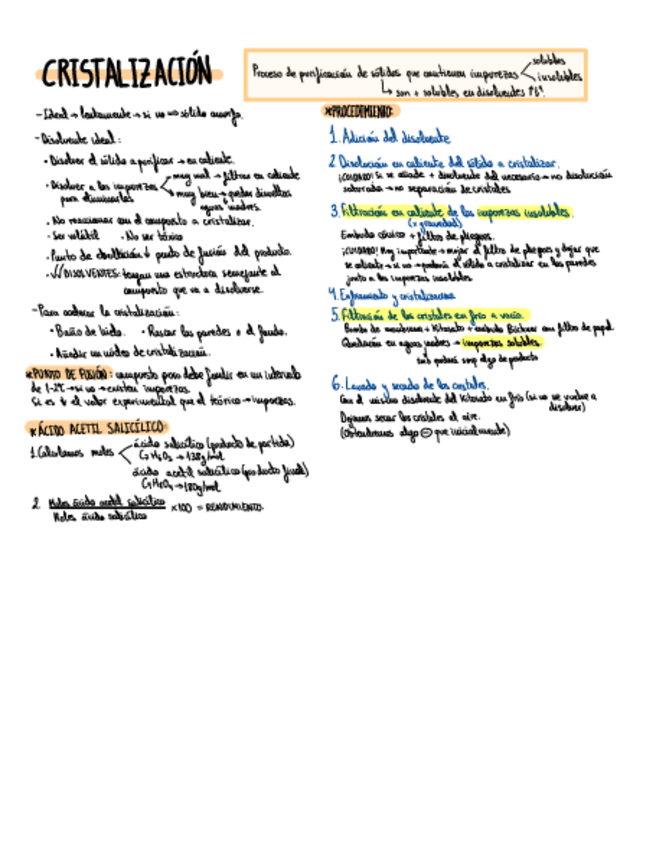 CRISTALIZACIÓN
Proceso de purificación de sólidos que contienen impurezas < solubles
insolubles
↳ son + solubles en disolventes ↑tª.
- Ideal → lentamente → si no ⇒ sólido amorfo.
- Disolvente ideal:
• Disolver el sólido a purificar → en caliente.
• Disolver a las impurezas para eliminarlas < muy mal → filtrar en caliente
muy bien → quedar disueltas aguas madres.
• No reaccionar con el compuesto a cristalizar.
• Ser volátil • No ser tóxico
• Punto de ebullición ↓ punto de fusión del producto.
• √√ DISOLVENTES: tengan una estructura semejante al
compuesto que va a disolverse.
- Para acelerar la cristalización:
• Baño de hielo. • Rascar las paredes o el fondo.
• Añadir un núcleo de cristalización.
*PUNTO DE FUSIÓN: compuesto puro debe fundir en un intervalo
de 1-2ºC → si no → existen impurezas.
Si es ↓ el valor experimental que el teórico → impurezas.
*ÁCIDO ACETIL SALICÍLICO:
1. Calculamos moles < ácido salicílico (producto de partida)
C7H6O3 → 138g/mol
ácido acetil salicílico (producto final)
→ 180g/mol
2. Moles ácido acetil salicílico
Moles ácido salicílico
x100 = RENDIMIENTO.
*PROCEDIMIENTO:
1. Adición del disolvente
2. Disolución en caliente del sólido a cristalizar.
¡CUIDADO! Si se añade + disolvente del necesario → no disolución
saturada → no separación de cristales
3. Filtración en caliente de las impurezas insolubles.
(x gravedad)
Embudo cónico + filtro de pliegues.
¡CUIDADO! Muy importante → mojar el filtro de pliegues y dejar que
se caliente → si no → podría el sólido a cristalizar en las paredes
junto a las impurezas insolubles.
4. Enfriamiento y cristalización
5. Filtración de los cristales en frío a vacío.
Bomba de membrana + Kitasato + embudo Büchner con filtro de papel.
Quedarán en aguas madres → impurezas solubles.
también podrá algo de producto
6. Lavado y secado de los cristales.
Con el mismo disolvente del Kitasato en frío (si no se vuelve a
disolver)
Dejamos secar los cristales al aire.
(Obtendremos algo ⊖ que inicialmente)